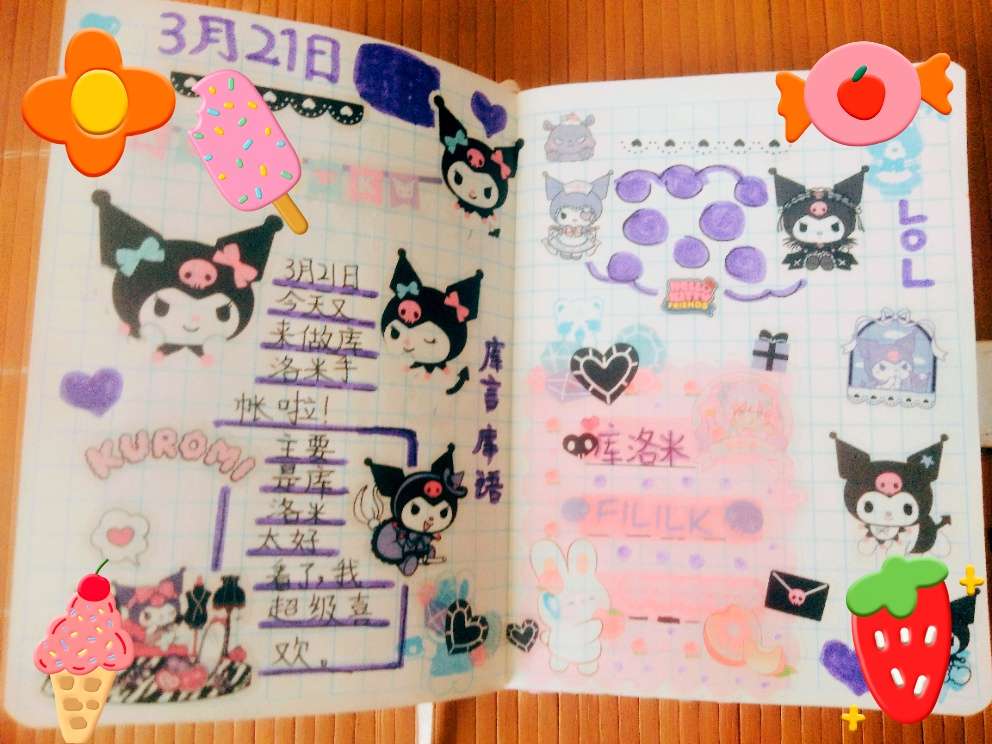 3月21日
3月21日
今天又
来做库
洛米手
帐啦!
主要
是库
洛米
太好
看了,我
超级喜
欢。
KUROMI
库言库语
HELLO
KITTY
FRIENDS
LOL
库洛米
FILILK